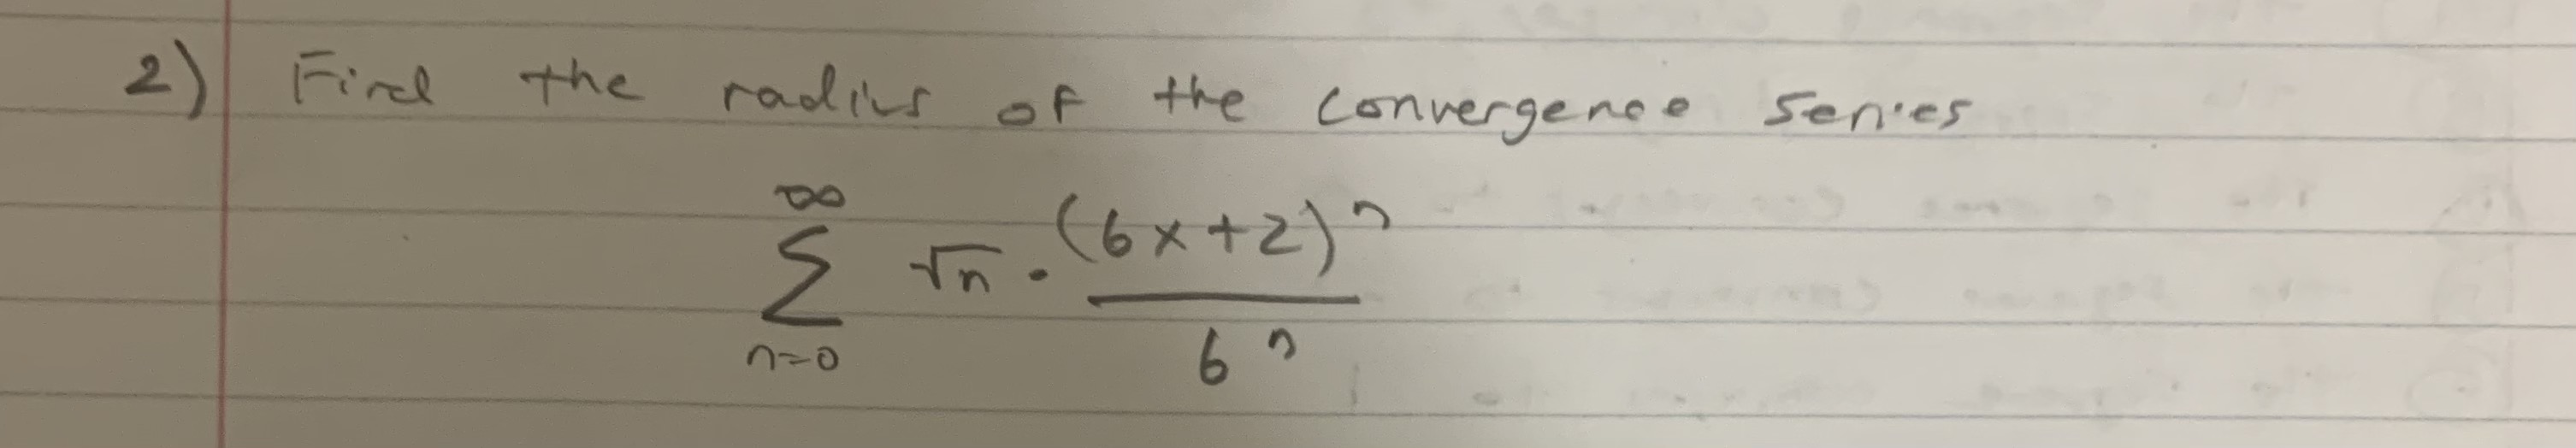 2) Find the radius of the convergence series
∞
∑ √n · (6x+2)^n / 6^n
n=0